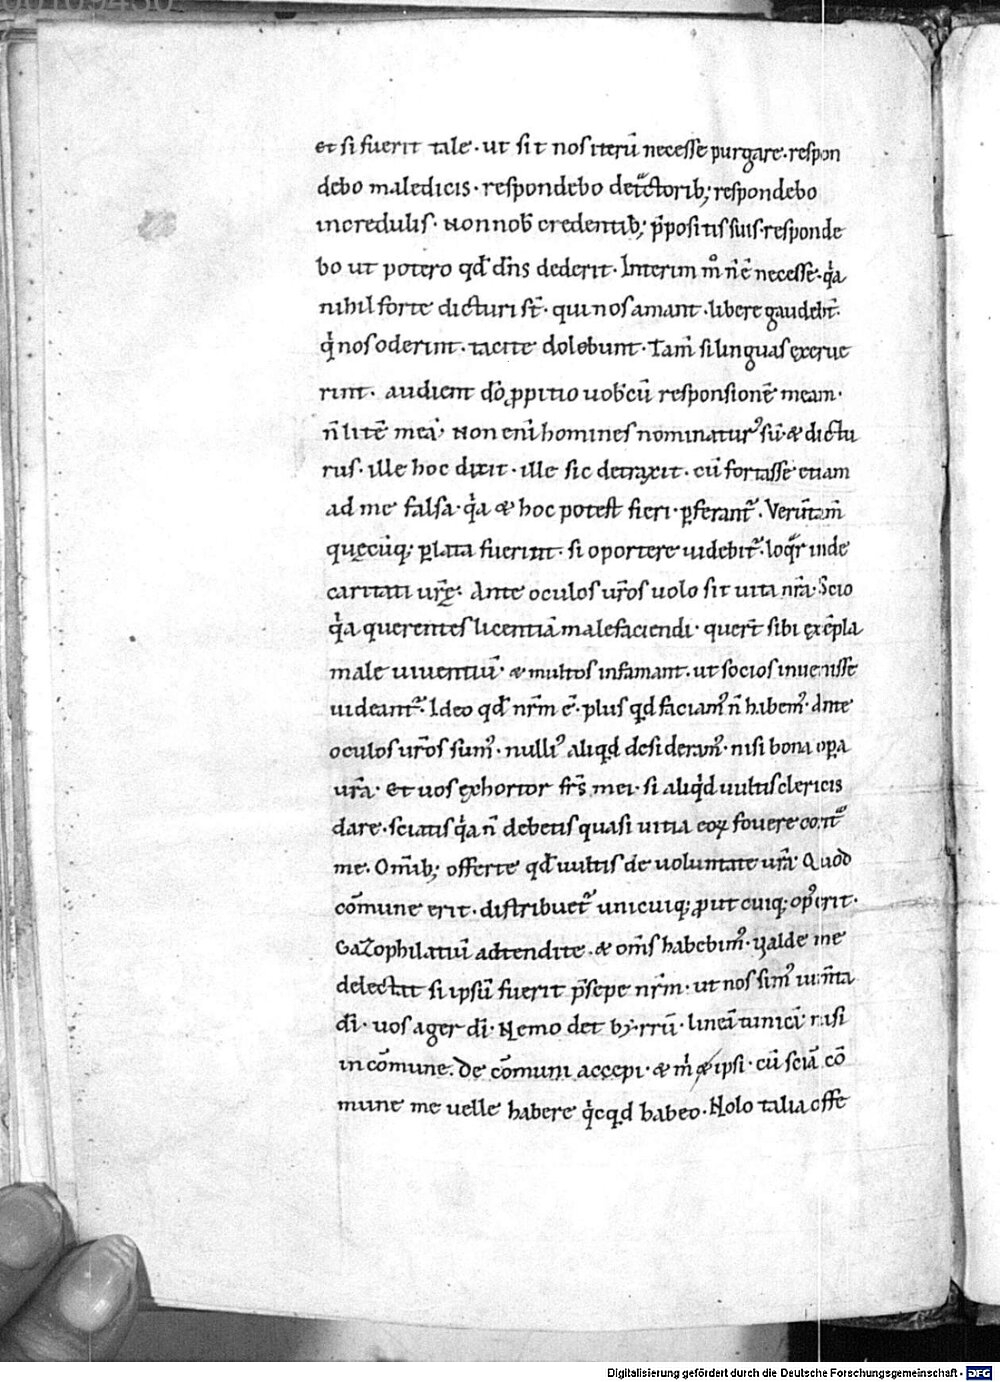 et si fuerit tale · ut sit nos iterū necesse purgare · respon
debo maledicis · respondebo detͣctorib; respondebo
incredulis · Non nob̄ credentib; p̄positis suis · responde
bo ut potero qd̄ dn̄s dederit · Interim m̊ n̄ ē necesse · qͥa
nihil forte dicturi st̄ · qui nos amant · libere gaudebt̄ ·
qͥ nos oderint · tacite dolebunt · Tam̄ si linguas exerue
rint · audient do͞ ꝓpitio uob̄cū responsionē meam ·
n̄ litē meā · Non eni͞ homines nominatur᾿ sū · & dictu
rus · ille hoc dixit · ille sic detraxit · cū fortasse etiam
ad me falsa · qͥa & hoc potest fieri · ꝑferant᷑ · Verūtam̄
quęcūq; ꝑlata fuerint · si oportere uidebit᷑ · loqͣr inde
caritati ur̄ę · Ante oculos ur̄os uolo sit uita nr̄a · Scio
qͥa querentes licentiā malefaciendi · quert̄ sibi exēpla
male uiuentiū · & multos infamant · ut socios inuenisse
uideant᷑ · Ideo qd̄ nr̄m ē · plus qͥd faciam᾿ n̄ habem᾿ · Ante
oculos ur̄os sum᾿ · nulli᾿ aliqͥd desideram᾿ · nisi bona oꝑa
ur̄a · Et uos exhortor fr̄s mei · si aliqͥd uultis clericis
dare · sciatis qͥa n̄ debetis quasi uitia eoꝝ fouere contͣ
me · Om̄ib; offerte qd̄ uultis de uoluntate ur̄a · Quod
cōmune erit · distribuet᷑ unicuiq; ꝓut cuiq; op᾿ erit ·
Gazophilatiū adtendite · & om̄s habebim᾿ · ualde me
delectat si ipsū fuerit p̄sepe nr̄m · ut nos sim᾿ ium̄ta
di͞ · uos ager di͞ · Nemo det byrrū · lineā tunicā nisi
in cōmune · De cōmuni accepi · & mͥ & ipsi · cū sciā cō
mune me uelle habere qͥcqͥd habeo · Nolo talia offe
Digitalisierung gefördert durch die Deutsche Forschungsgemeinschaft - DFG